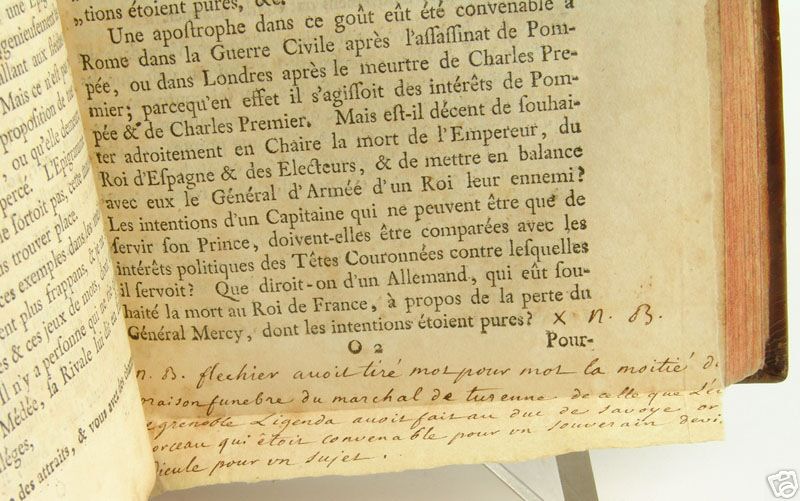 une
Mais ce n'est pas
proposition de
, ou qu'elle
percé. L'Epigramme
ne sortoit pas, cette
trouver place.
ces exemples dans les
plus frappans, &
& ces jeux de mots,
Il n'y a personne qui ne
Médée, sa Rivale lui dit
lèges,
des attraits, & vous avez des
„tions étoient pures, &c.
Une apostrophe dans ce goût eût été convenable à
Rome dans la Guerre Civile après l'assassinat de Pom-
pée, ou dans Londres après le meurtre de Charles Pre-
mier; parcequ'en effet il s'agissoit des intérêts de Pom-
pée & de Charles Premier. Mais est-il décent de souhai-
ter adroitement en Chaire la mort de l'Empereur, du
Roi d'Espagne & des Electeurs, & de mettre en balance
avec eux le Général d'Armée d'un Roi leur ennemi?
Les intentions d'un Capitaine qui ne peuvent être que de
servir son Prince, doivent-elles être comparées avec les
intérêts politiques des Têtes Couronnées contre lesquelles
il servoit? Que diroit-on d'un Allemand, qui eût sou-
haité la mort au Roi de France, à propos de la perte du
Général Mercy, dont les intentions étoient pures? x n. B.
O 2 Pour-
n. B. flechier avoit tiré mot pour mot la moitié d
funebre du marchal de turenne de celle que L'é
grenoble Ligenda avoit fait au duc de savoye or
morceau qui étoit convenable pour un souverain devi
dicule pour un sujet.